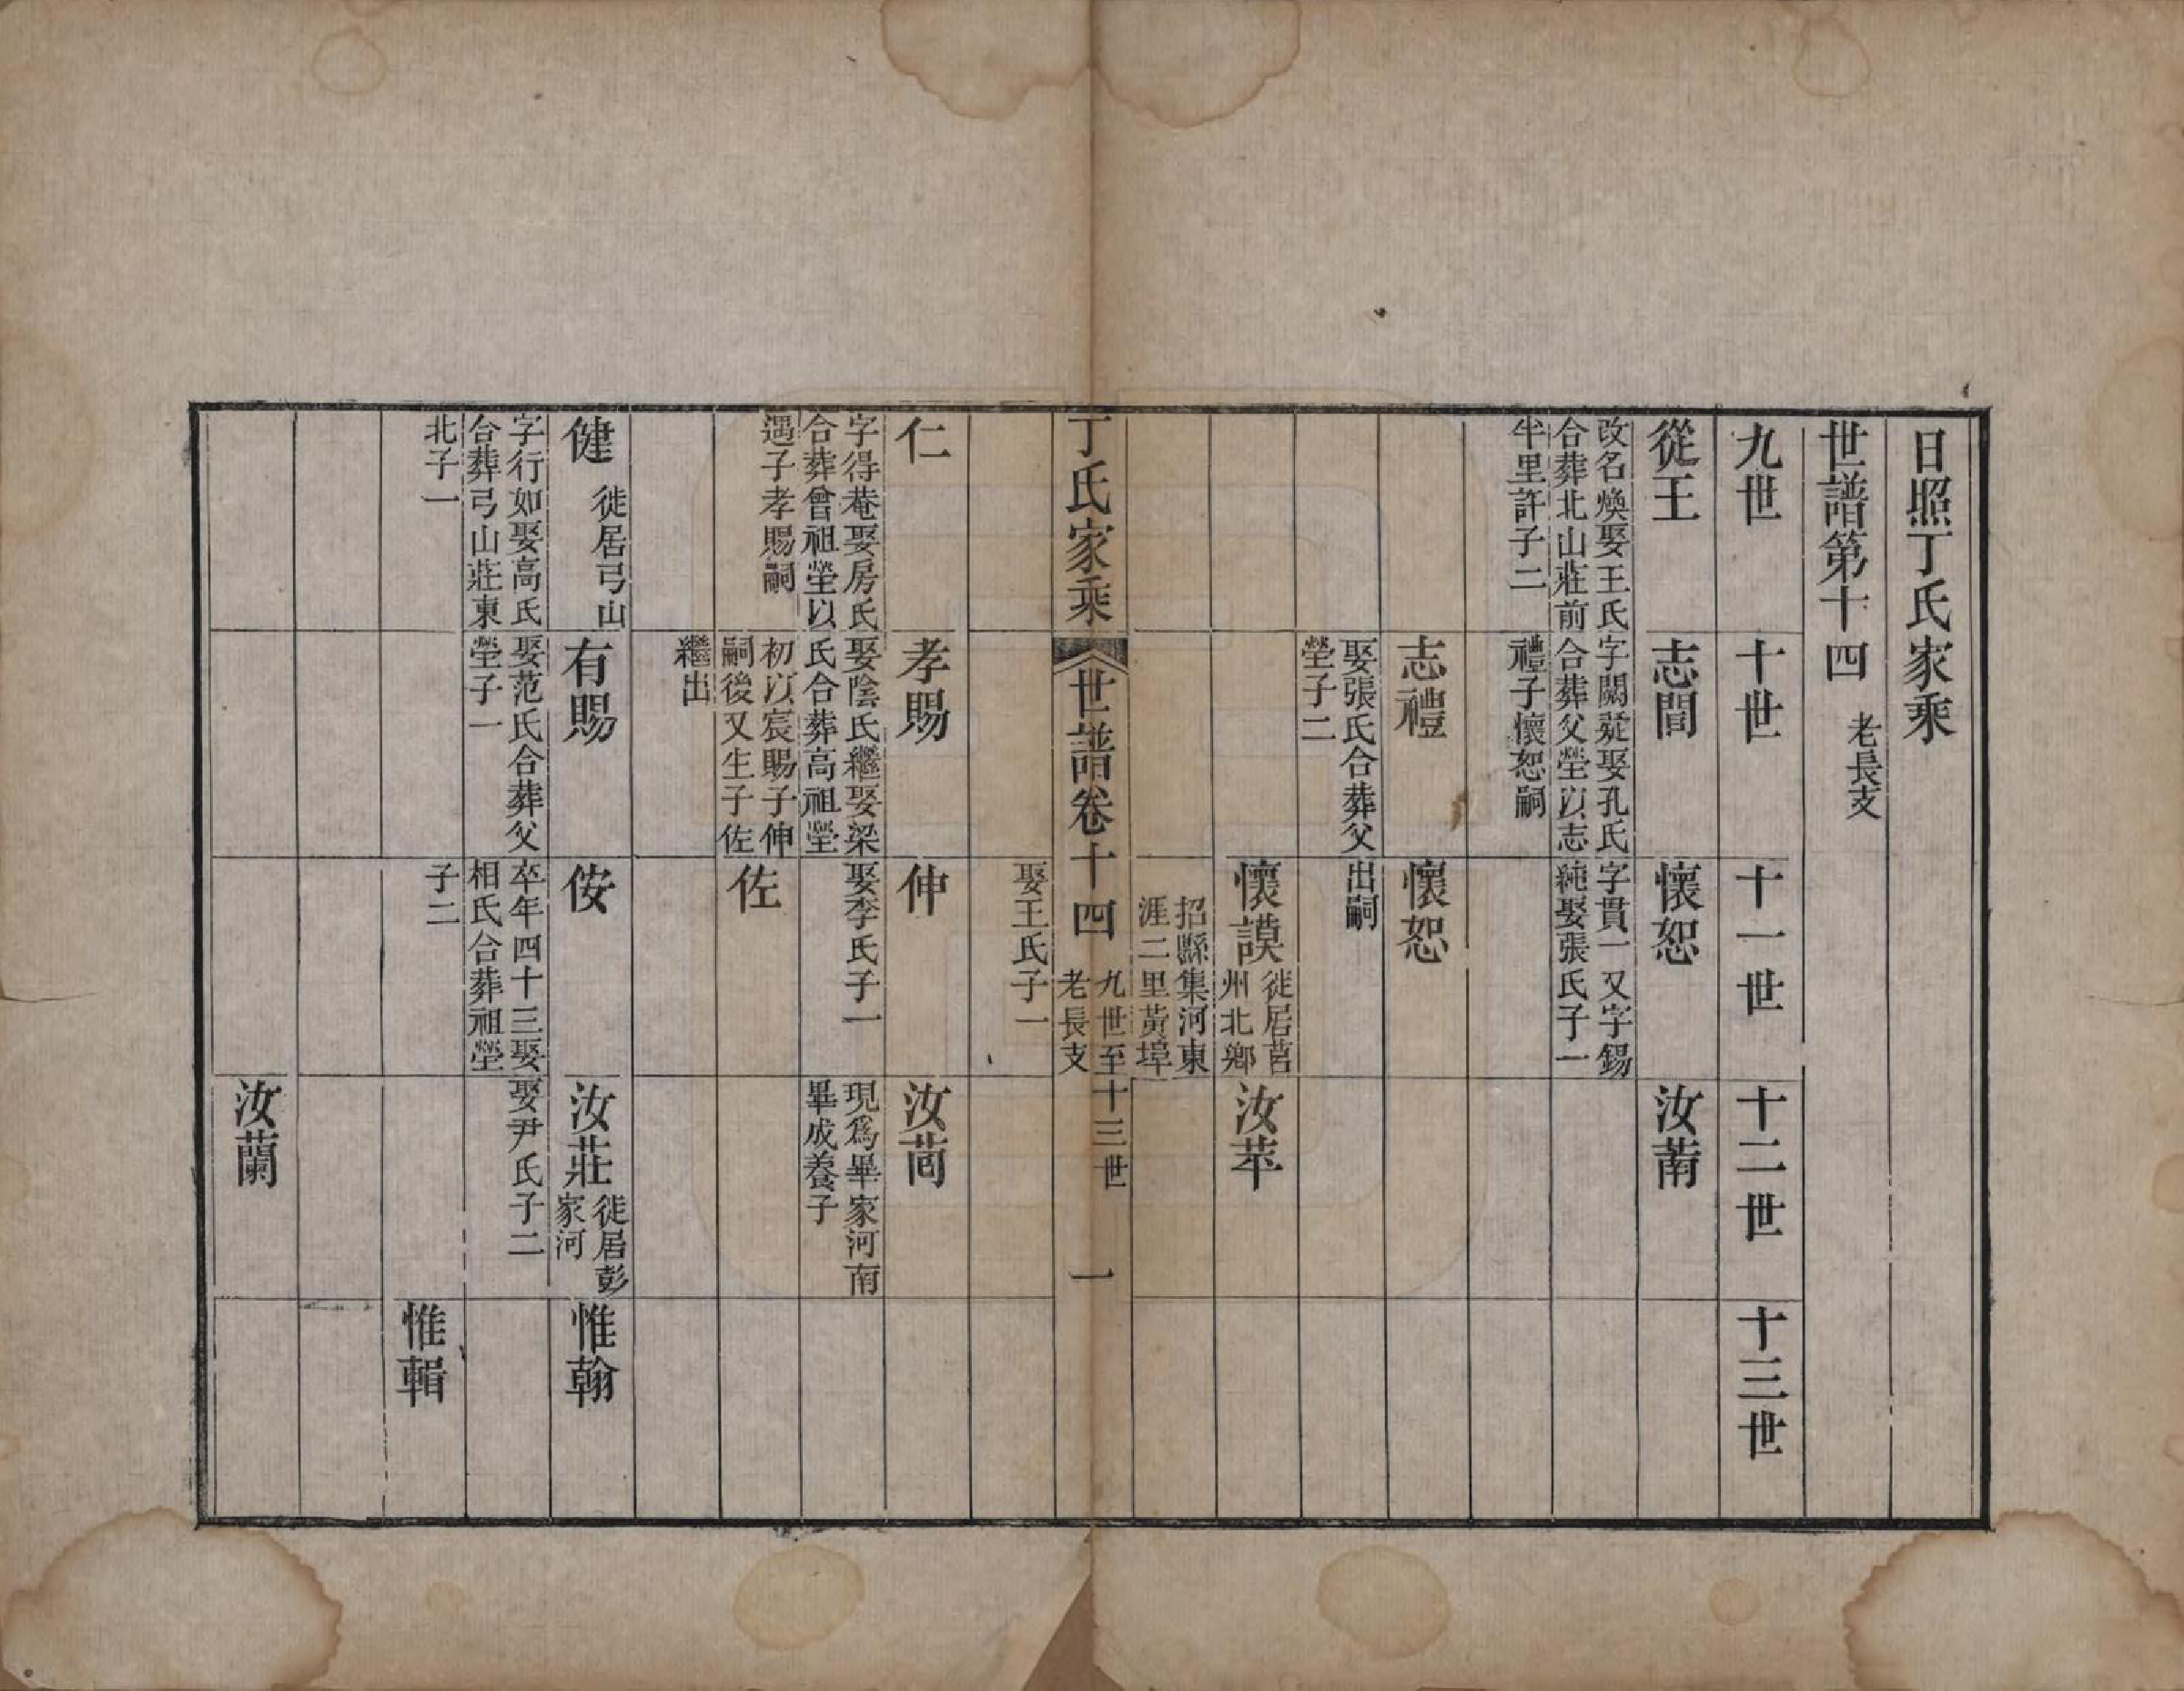 日照丁氏家乘
世譜第十四 老長支
九世
十世
十一世
十二世
十三世
從王
改名煥娶王氏
合葬北山莊前
半里許子二
志閶
字闕莚娶孔氏
合葬父塋以志
禮子懷恕嗣
懷恕
字貫一又字錫
純娶張氏子一
汝莆
志禮
娶張氏合葬父
塋子二
懷恕
出嗣
懷謨
徙居莒
州北鄉
招縣集河東
涯二里黃埠
汝苹
丁氏家乘
世譜卷十四
九世至十三世
老長支
一
娶王氏子一
仁
字得菴娶房氏
合葬曾祖塋以
遇子孝賜嗣
孝賜
娶陰氏繼娶梁
氏合葬高祖塋
初以宸賜子伸
嗣後又生子佐
繼出
伸
娶李氏子一
汝茼
現爲畢家河南
畢成養子
佐
健
徙居弓山
字行如娶高氏
合葬弓山莊東
北子一
有賜
娶范氏合葬父
塋子一
侒
卒年四十三娶
相氏合葬祖塋
子二
汝莊
徙居彭
家河
娶尹氏子二
惟翰
惟輯
汝蘭